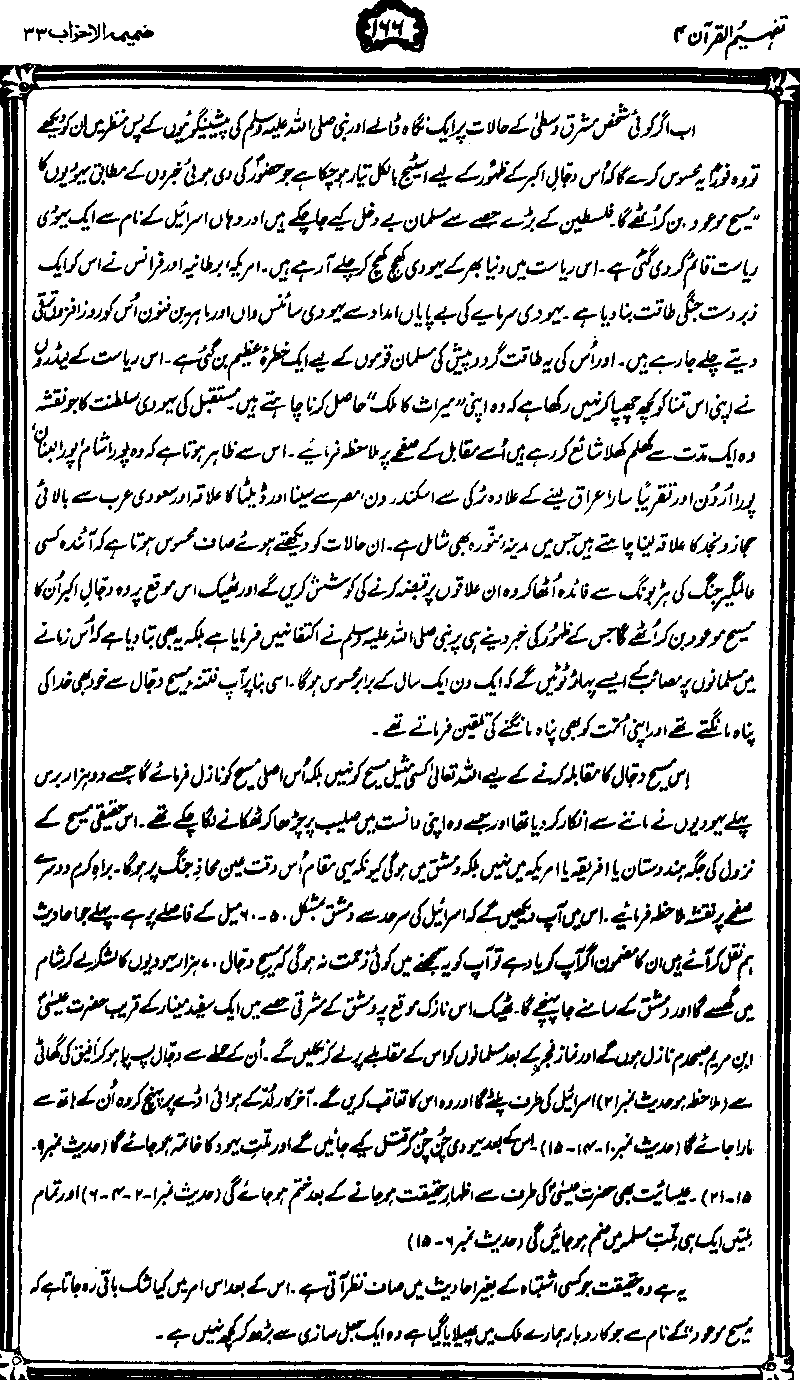 تفہیم القرآن ۴
۱۶۶
ضمیمہ الاحزاب ۳۳
اب اگر کوئی شخص مشرق وسطیٰ کے حالات پر ایک نگاہ ڈالے اور نبی صلی اللہ علیہ وسلم کی پیشینگوئیوں کے پس منظر میں ان کو دیکھے
تو وہ فوراً یہ محسوس کرے گا کہ اُس دجال اکبر کے ظہور کے لیے اسٹیج بالکل تیار ہو چکا ہے جو حضورؐ کی دی ہوئی خبروں کے مطابق یہودیوں کا
"مسیح موعود" بن کر اُٹھے گا۔ فلسطین کے بڑے حصے سے مسلمان بے دخل کیے جا چکے ہیں اور وہاں اسرائیل کے نام سے ایک یہودی
ریاست قائم کر دی گئی ہے۔ اس ریاست میں دنیا بھر کے یہودی کھچ کھچ کر چلے آ رہے ہیں۔ امریکہ، برطانیہ اور فرانس نے اس کو ایک
زبردست جنگی طاقت بنا دیا ہے۔ یہودی سرمایے کی بے پایاں امداد سے یہودی سائنس داں اور ماہرین فنون اُس کو روز افزوں ترقی
دیتے چلے جا رہے ہیں۔ اور اُس کی یہ طاقت گرد و پیش کی مسلمان قوموں کے لیے ایک خطرۂ عظیم بن گئی ہے۔ اس ریاست کے لیڈروں
نے اپنی اس تمنا کو کچھ چھپا کر نہیں رکھا ہے کہ وہ اپنی "میراث کا ملک" حاصل کرنا چاہتے ہیں۔ مستقبل کی یہودی سلطنت کا جو نقشہ
وہ ایک مدت سے کھلم کھلا شائع کر رہے ہیں اُسے مقابل کے صفحے پر ملاحظہ فرمائیے۔ اس سے ظاہر ہوتا ہے کہ وہ پورا شام، پورا لبنان،
پورا اُردُن اور تقریباً سارا عراق لینے کے علاوہ ترکی سے اسکندرون، مصر سے سینا اور ڈیلٹا کا علاقہ اور سعودی عرب سے بالائی
حجاز و نجد کا علاقہ لینا چاہتے ہیں جس میں مدینۂ منورہ بھی شامل ہے۔ ان حالات کو دیکھتے ہوئے صاف محسوس ہوتا ہے کہ آئندہ کسی
عالمگیر جنگ کی ہڑبونگ سے فائدہ اُٹھا کر وہ ان علاقوں پر قبضہ کرنے کی کوشش کریں گے اور ٹھیک اس موقع پر وہ دجال اکبر اُن کا
مسیح موعود بن کر اُٹھے گا جس کے ظہور کی خبر دینے ہی پر نبی صلی اللہ علیہ وسلم نے اکتفا نہیں فرمایا ہے بلکہ یہ بھی بتا دیا ہے کہ اُس زمانے
میں مسلمانوں پر مصائب کے ایسے پہاڑ ٹوٹیں گے کہ ایک دن ایک سال کے برابر محسوس ہوگا۔ اسی بنا پر آپ فتنۂ مسیح دجال سے خود بھی خدا کی
پناہ مانگتے تھے اور اپنی اُمت کو بھی پناہ مانگنے کی تلقین فرماتے تھے۔
اِس مسیح دجال کا مقابلہ کرنے کے لیے اللہ تعالیٰ کسی مثیل مسیح کو نہیں بلکہ اُس اصلی مسیح کو نازل فرمائے گا جسے دو ہزار برس
پہلے یہودیوں نے ماننے سے انکار کر دیا تھا اور جسے وہ اپنی دانست میں صلیب پر چڑھا کر ٹھکانے لگا چکے تھے۔ اس حقیقی مسیح کے
نزول کی جگہ ہندوستان یا افریقہ یا امریکہ میں نہیں بلکہ دمشق میں ہوگی کیونکہ یہی مقام اُس وقت عین محاذ جنگ پر ہوگا۔ براہ کرم دوسرے
صفحے پر نقشہ ملاحظہ فرمائیے۔ اس میں آپ دیکھیں گے کہ اسرائیل کی سرحد سے دمشق بمشکل ۵۰۔۶۰ میل کے فاصلے پر ہے۔ پہلے جو احادیث
ہم نقل کر آئے ہیں ان کا مضمون اگر آپ کو یاد ہے تو آپ کو یہ سمجھنے میں کوئی زحمت نہ ہوگی کہ مسیح دجال ۷۰ ہزار یہودیوں کا لشکر لے کر شام
میں گھسے گا اور دمشق کے سامنے جا پہنچے گا۔ ٹھیک اس نازک موقع پر دمشق کے مشرقی حصے میں ایک سفید مینار کے قریب حضرت عیسیٰؑ
ابن مریم صبحدم نازل ہوں گے اور نماز فجر کے بعد مسلمانوں کو اس کے مقابلے پر لے کر نکلیں گے۔ اُن کے حملے سے دجال پسپا ہو کر افیق کی گھاٹی
سے (ملاحظہ ہو حدیث نمبر ۲۱) اسرائیل کی طرف پلٹے گا اور وہ اس کا تعاقب کریں گے۔ آخر کار لُدّ کے ہوائی اڈے پر پہنچ کر وہ اُن کے ہاتھ سے
مارا جائے گا (حدیث نمبر ۱۰۔۱۴۔۱۵)۔ اِس کے بعد یہودی چُن چُن کر قتل کیے جائیں گے اور ملت یہود کا خاتمہ ہو جائے گا (حدیث نمبر ۹۔
۱۵۔۲۱)۔ عیسائیت بھی حضرت عیسیٰؑ کی طرف سے اظہار حقیقت ہو جانے کے بعد ختم ہو جائے گی (حدیث نمبر ۱۔۲۔۴۔۶) اور تمام
ملتیں ایک ہی ملت مسلمہ میں ضم ہو جائیں گی (حدیث نمبر ۶۔۱۵)
یہ ہے وہ حقیقت جو کسی اشتباہ کے بغیر احادیث میں صاف نظر آتی ہے۔ اس کے بعد اس امر میں کیا شک باقی رہ جاتا ہے کہ
"مسیح موعود" کے نام سے جو کاروبار ہمارے ملک میں پھیلایا گیا ہے وہ ایک جعل سازی سے بڑھ کر کچھ نہیں ہے۔